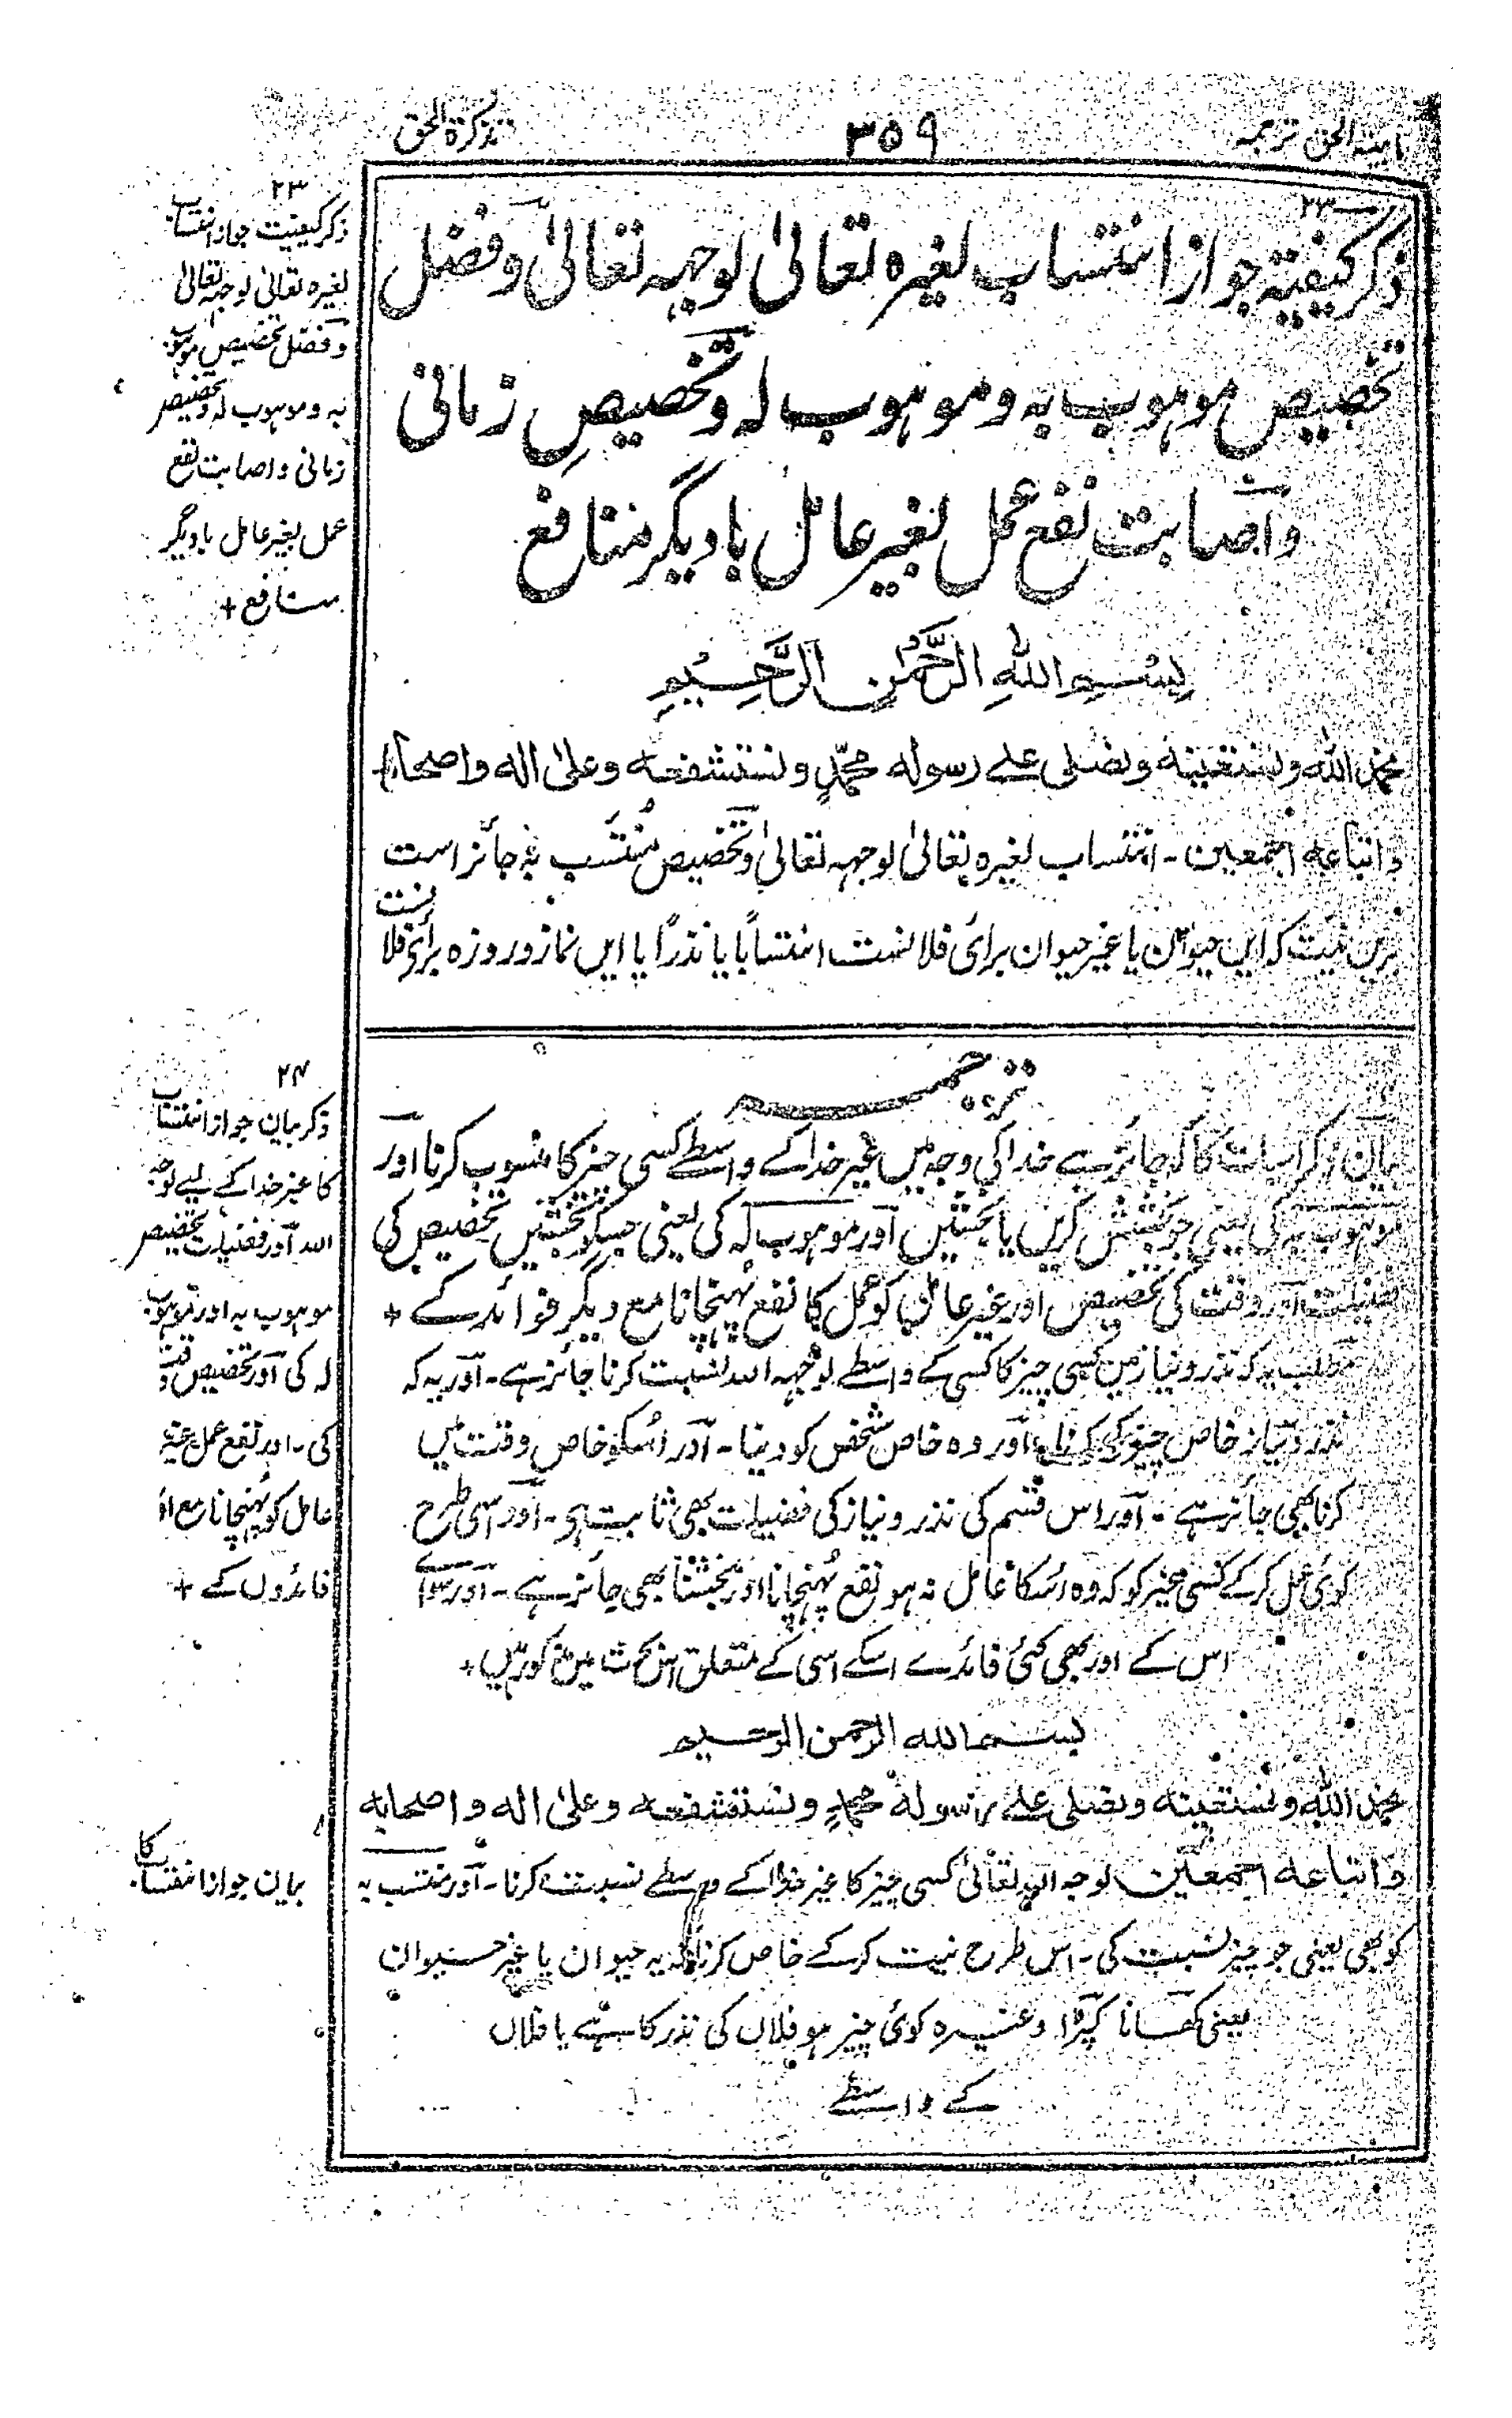 آئینۃ الحق ترجمہ
۳۵۹
تذکرۃ الحق
۲۳
ذکر کیفیۃ جواز انتساب لغیرہ تعالیٰ لوجہہ تعالیٰ و فضل
تخصیص موہوب بہ و موہوب لہ و تخصیص زمانی
و اصابت نفع عمل لغیر عامل با دیگر منافع
بِسْمِ اللهِ الرَّحْمٰنِ الرَّحِیْمِ
نحمد الله ونستعینه ونصلی علے رسوله محمّدٍ ونستشفعه وعلیٰ اله واصحابه
واتباعه اجمعین ۔ انتساب لغیرہ تعالیٰ لوجہہ تعالیٰ و تخصیص مُنتسَب بہ جائز است
برین نیت کہ این حیوان یا غیر حیوان برائی فلانست انتساباً یا نذراً یا این نماز و روزہ برائی فلانست
۲۳
ذکر کیفیت جواز انتساب
لغیرہ تعالیٰ لوجہہ تعالیٰ
و فضل تخصیص موہوب
بہ و موہوب لہ و تخصیص
زمانی و اصابت نفع
عمل لغیر عامل با دیگر
منافع +
ترجمہ
بیان ذکر اسبات کا کہ جائز ہے خدا کی وجہ میں غیر خدا کے واسطے کسی چیز کا منسوب کرنا اور
موہوب بہ کی یعنی جو بخشش کریں یا بخشیں اور موہوب لہ کی یعنی جسکو بخشیں تخصیص کی
فضیلت اور وقت کی تخصیص اور غیر عامل کو عمل کا نفع پہنچانا مع دیگر فوائد کے +
مطلب یہ کہ نذر و نیاز میں کسی چیز کا کسی کے واسطے لوجہہ اللہ نسبت کرنا جائز ہے ۔ اور یہ کہ
نذر و نیاز خاص چیز کی کرنا اور وہ خاص شخص کو دینا ۔ اور اسکو خاص وقت میں
کرنا بھی جائز ہے ۔ اور اس قسم کی نذر و نیاز کی فضیلت بھی ثابت ہی ۔ اور اسی طرح
کوئی عمل کر کے کسی غیر کو کہ وہ اسکا عامل نہ ہو نفع پہنچانا اور بخشنا بھی جائز ہے ۔ اور سوا
اس کے اور بھی کئی فائدے اسکے اسی کے متعلق اس بحث میں مذکور ہیں +
بسم الله الرحمن الرحیم
نحمد الله ونستعینه ونصلی علے رسوله محمدٍ ونستشفعه وعلیٰ اله واصحابه
واتباعه اجمعین لوجہ اللہ تعالیٰ کسی چیز کا غیر خدا کے واسطے نسبت کرنا ۔ اور منتسب بہ
کو بھی یعنی جو چیز نسبت کی ۔ اس طرح نیت کر کے خاص کرنا کہ یہ حیوان یا غیر حیوان
یعنی کھانا کپڑا وغیرہ کوئی چیز ہو فلاں کی نذر کا ہے یا فلاں
کے واسطے
۲۴
ذکر بیان جواز انتساب
کا غیر خدا کے لیے لوجہ
اللہ اور فضیلت تخصیص
موہوب بہ اور موہوب
لہ کی اور تخصیص وقت
کی ۔ اور نفع عمل غیر
عامل کو پہنچانا مع اور
فائدوں کے +
بیان جواز انتساب کا